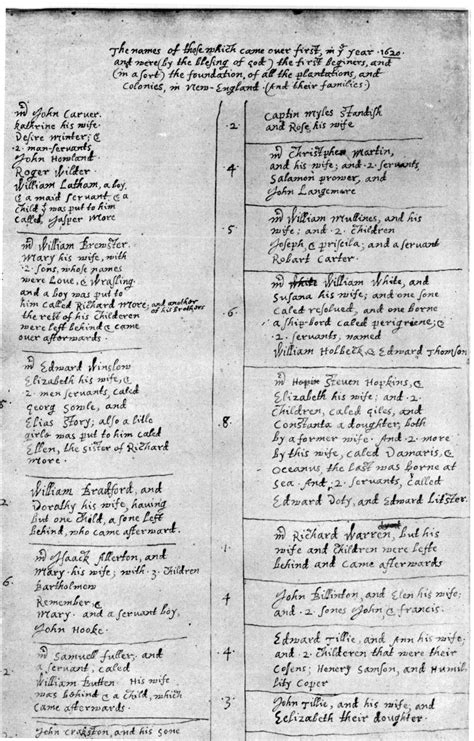 The names of those which came over first, in yᵉ year .1620.
and were (by the blesing of god) the first beginers, and
(in a sort) the foundation, of all the plantations, and
Colonies, in New-England. (And their families.)
mʳ John Carver.
kathrine his wife.
Desire Minter; &
.2. man-servants
John Howland
Roger Wilder.
William Latham, a boy,
& a maid servant, & a
child yᵗ was put to him
called, Jasper More
mʳ William Brewster.
Mary his wife, with
.2. sons, whose names
were Love, & Wrasling.
and a boy was put to
him called Richard More; and another
of his brothers
the rest of his children
were left behind & came
over afterwards.
5.
mʳ Edward Winslow
Elizabeth his wife, &
2. men servants, caled
Georg Sowle, and
Elias Story; also a litle
girle was put to him caled
Ellen, the sister of Richard
More.
2.
William Bradford, and
Dorathy his wife, having
but one child, a sone left
behind, who came afterward.
6.
mʳ Isaack Allerton, and
Mary his wife; with .3. children
Bartholmew
Remember, &
Mary. and a servant boy,
John Hooke.
2.
mʳ Samuell fuller; and
a servant, caled
William Butten. His wife
was behind & a child, which
came afterwards.
John Crakston, and his sone
.2.
Captin Myles Standish
and Rose, his wife
4.
mʳ Christopher Martin,
and his wife; and .2. servants,
Salamon prower, and
John Langemore
.5.
mʳ William Mullines, and his
wife; and .2. children
Joseph, & priscila; and a servant
Robart Carter.
.6.
mʳ William White, and
Susana his wife; and one sone
caled resolved, and one borne
a ship-bord caled perigriene; &
.2. servants, named
William Holbeck, & Edward Thomson
.8.
mʳ Steven Hopkins, &
Elizabeth his wife; and .2.
children, caled Giles, and
Constanta a doughter, both
by a former wife. And .2. more
by this wife, caled Damaris, &
Oceanus, the last was borne at
sea. And .2. servants, called
Edward Doty, and Edward Litster.
.1.
mʳ Richard Warren, but his
wife and children were lefte
behind and came afterwards
4
John Billinton, and Elen his wife;
and .2. sones John & francis.
.4.
Edward Tillie, and Ann his wife;
and .2. childeren that were their
Cosens; Henery Samson, and Humil-
lity Coper
.3.
John Tillie, and his wife; and
Eelizabeth their doughter.